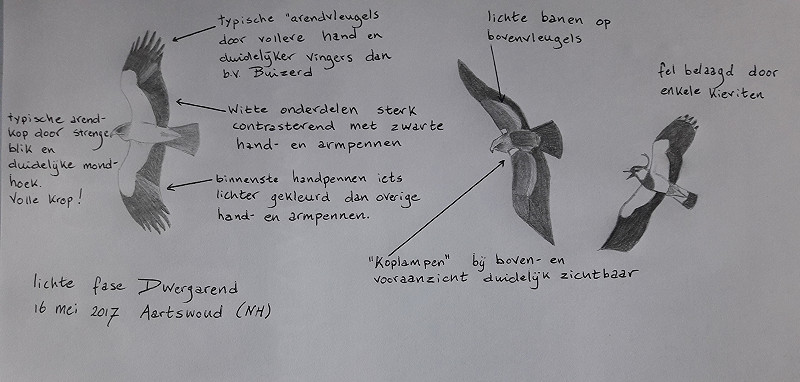 typische "arendvleugels
door vollere hand en
duidelijker vingers dan
b.v. Buizerd
lichte banen op
bovenvleugels
fel belaagd door
enkele Kieviten
typische arend-
kop door strenge
blik en
duidelijke mond-
hoek.
Volle krop!
Witte onderdelen sterk
contrasterend met zwarte
hand- en armpennen
binnenste handpennen iets
lichter gekleurd dan overige
hand- en armpennen.
"Koplampen" bij boven- en
vooraanzicht duidelijk zichtbaar
lichte fase Dwergarend
16 mei 2017 Aartswoud (NH)